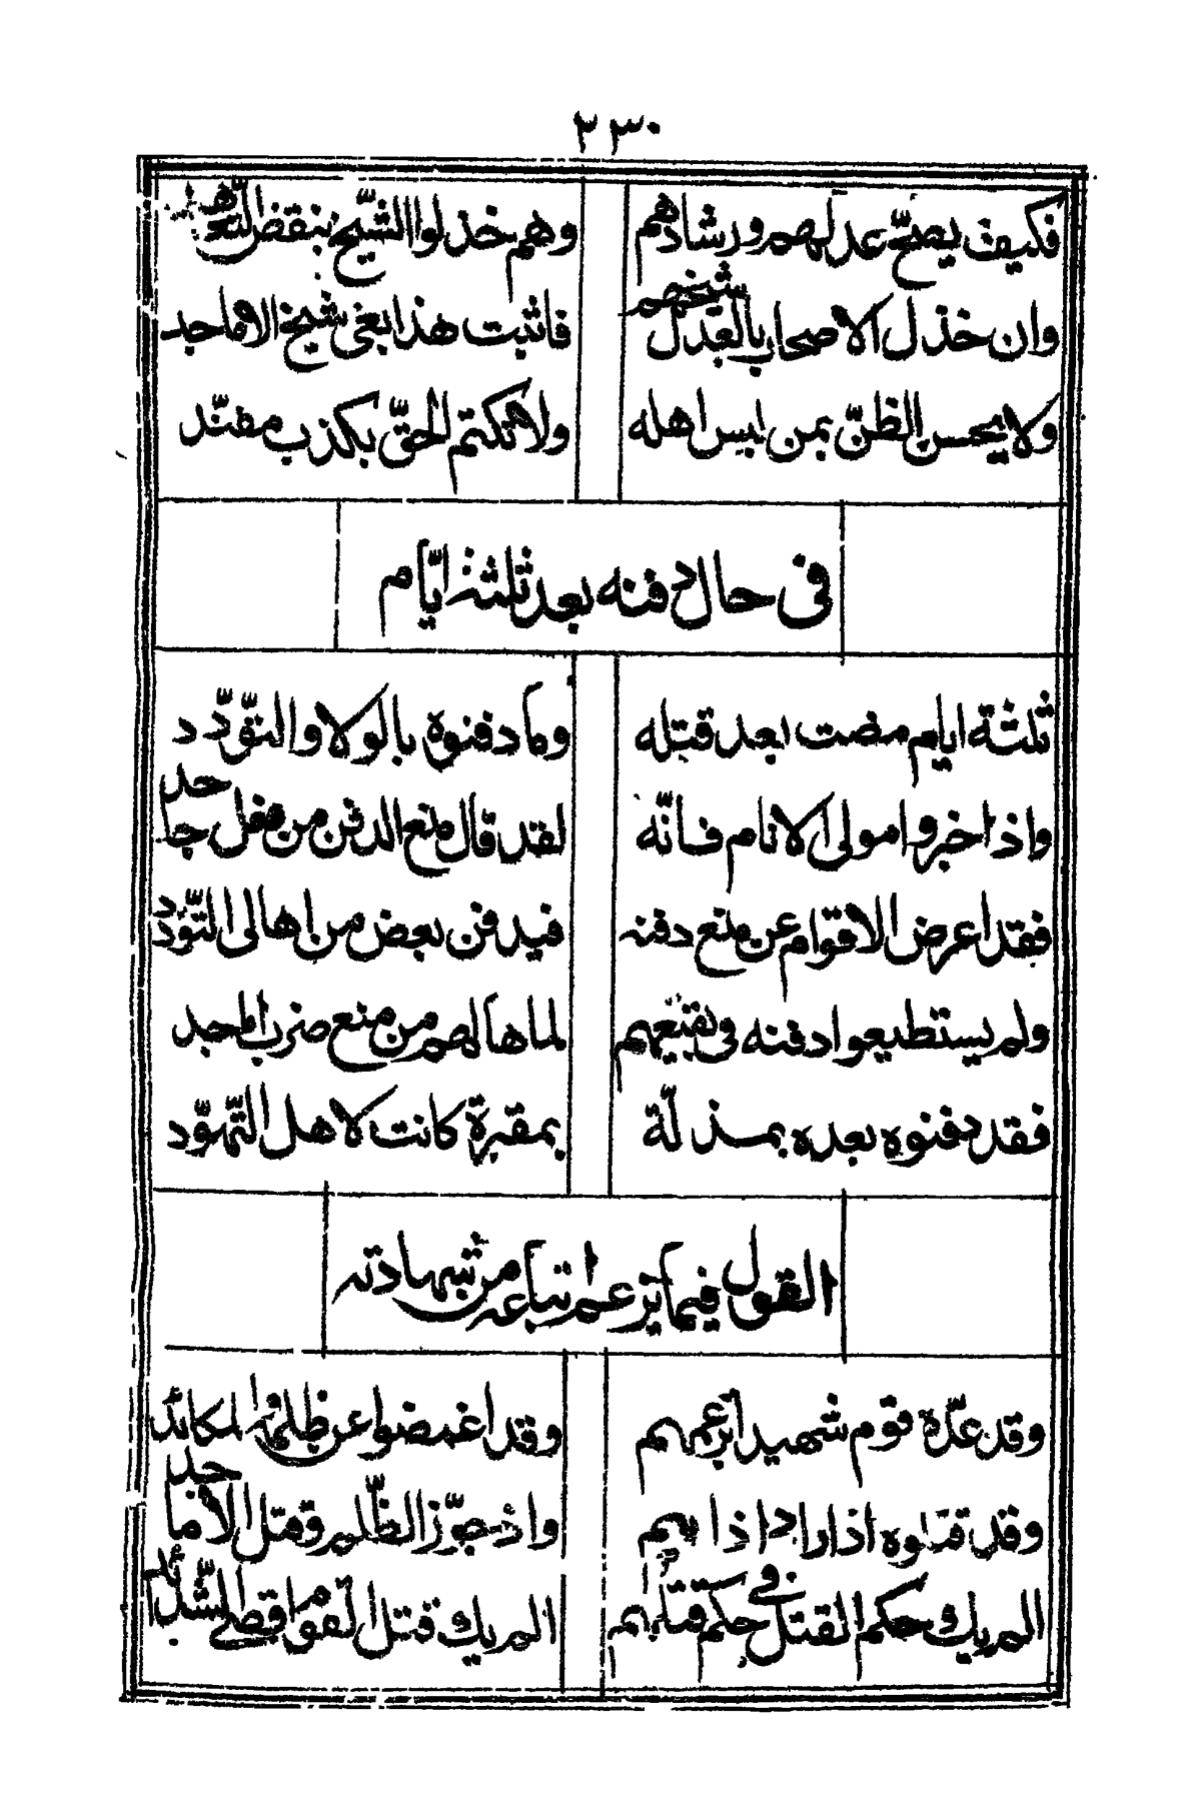 ٢٣٠
فكيف يصحّ عدلهم ورشادهم وهم خذلوا الشّيخ بنقض التّعهّد
وان خذل الاصحاب بالعدل شيخهم فاثبت هذا بغى شيخ الاماجد
ولا يحسن الظنّ بمن ليس اهله ولا تكتم الحقّ بكذب مفنّد
فى حال دفنه بعد ثلثة ايّام
ثلثة ايام مضت بعد قتله وما دفنوه بالولا والتّودّد
واذا خبروا مولى الانام فانّه لقد قال منع الدفن من فعل جاحد
فقد اعرض الاقوام عن منع دفنه فيدفن بعض من اهالى التّودّد
ولم يستطيعوا دفنه فى بقيعهم لما هالهم من منع ضرب الحد
فقد دفنوه بعده بمذلّة بمقبرة كانت لاهل التّهوّد
القول فيما يزعم اتباعه من شهادته
وقد عدّه قوم شهيدا بزعمهم وقد اغمضوا عن ظلمه المكائد
وقد قتلوه اذ اراد اذاهم واذ جوّز الظّلم وقتل الاماجد
الم يك حكم القتل فى حكم قتلهم الم يك قتل القوم اقصى الشّدائد